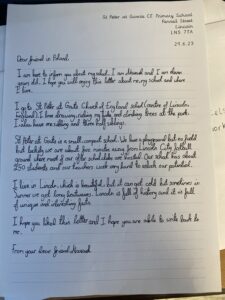 St Peter at Gowts CE Primary School
Pennell Street
Lincoln
LN5 7TA
29.6.23
Dear friend in Poland,
I am here to inform you about my school. I am and I am eleven
years old. I hope you will enjoy this letter about me, my school and where
I live.
I go to St Peter at Gowts Church of England school (centre of Lincoln,
England). I love drawing, riding my bike and climbing trees at the park.
I also have one sibling and three half siblings.
St Peter at Gowts is a small, compact school. We have a playground but no field
but luckily we are about five minutes away from Lincoln City football
ground where most of our after school clubs are located. Our school has about
250 students and our teachers work very hard to unlock our potential.
I live in Lincoln which is beautiful but it can get cold but sometimes in
summer we get long heatwaves. Lincoln is full of history and it is full
of unique and interesting facts.
I hope you liked this letter and I hope you are able to write back to
me.
From your dear friend